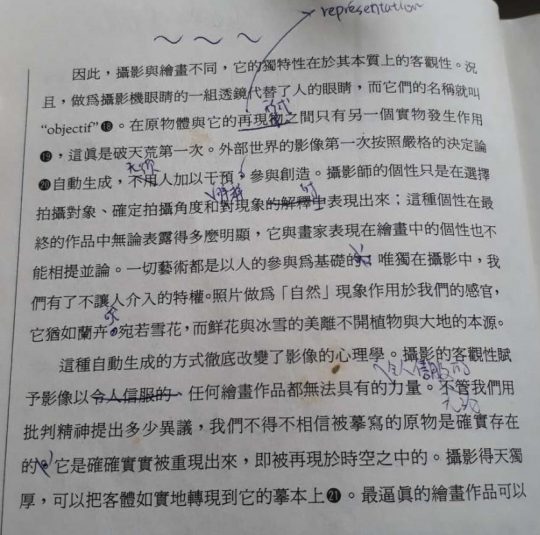 représentation
因此，攝影與繪畫不同，它的獨特性在於其本質上的客觀性。況
且，做爲攝影機眼睛的一組透鏡代替了人的眼睛，而它們的名稱就叫
“objectif”⓲。在原物體與它的再現物之間只有另一個實物發生作用
⓳，這眞是破天荒第一次。外部世界的影像第一次按照嚴格的決定論
⓴自動生成，不用人加以干預，參與創造。攝影師的個性只是在選擇
拍攝對象、確定拍攝角度和對現象的解釋中表現出來；這種個性在最
終的作品中無論表露得多麼明顯，它與畫家表現在繪畫中的個性也不
能相提並論。一切藝術都是以人的參與爲基礎的，唯獨在攝影中，我
們有了不讓人介入的特權。照片做爲「自然」現象作用於我們的感官，
它猶如蘭卉，宛若雪花，而鮮花與冰雪的美離不開植物與大地的本源。
這種自動生成的方式徹底改變了影像的心理學。攝影的客觀性賦
令人信服的
予影像以令人信服的、任何繪畫作品都無法具有的力量。不管我們用
批判精神提出多少異議，我們不得不相信被摹寫的原物是確實存在
的，它是確確實實被重現出來，即被再現於時空之中的。攝影得天獨
厚，可以把客體如實地轉現到它的摹本上㉑。最逼眞的繪畫作品可以